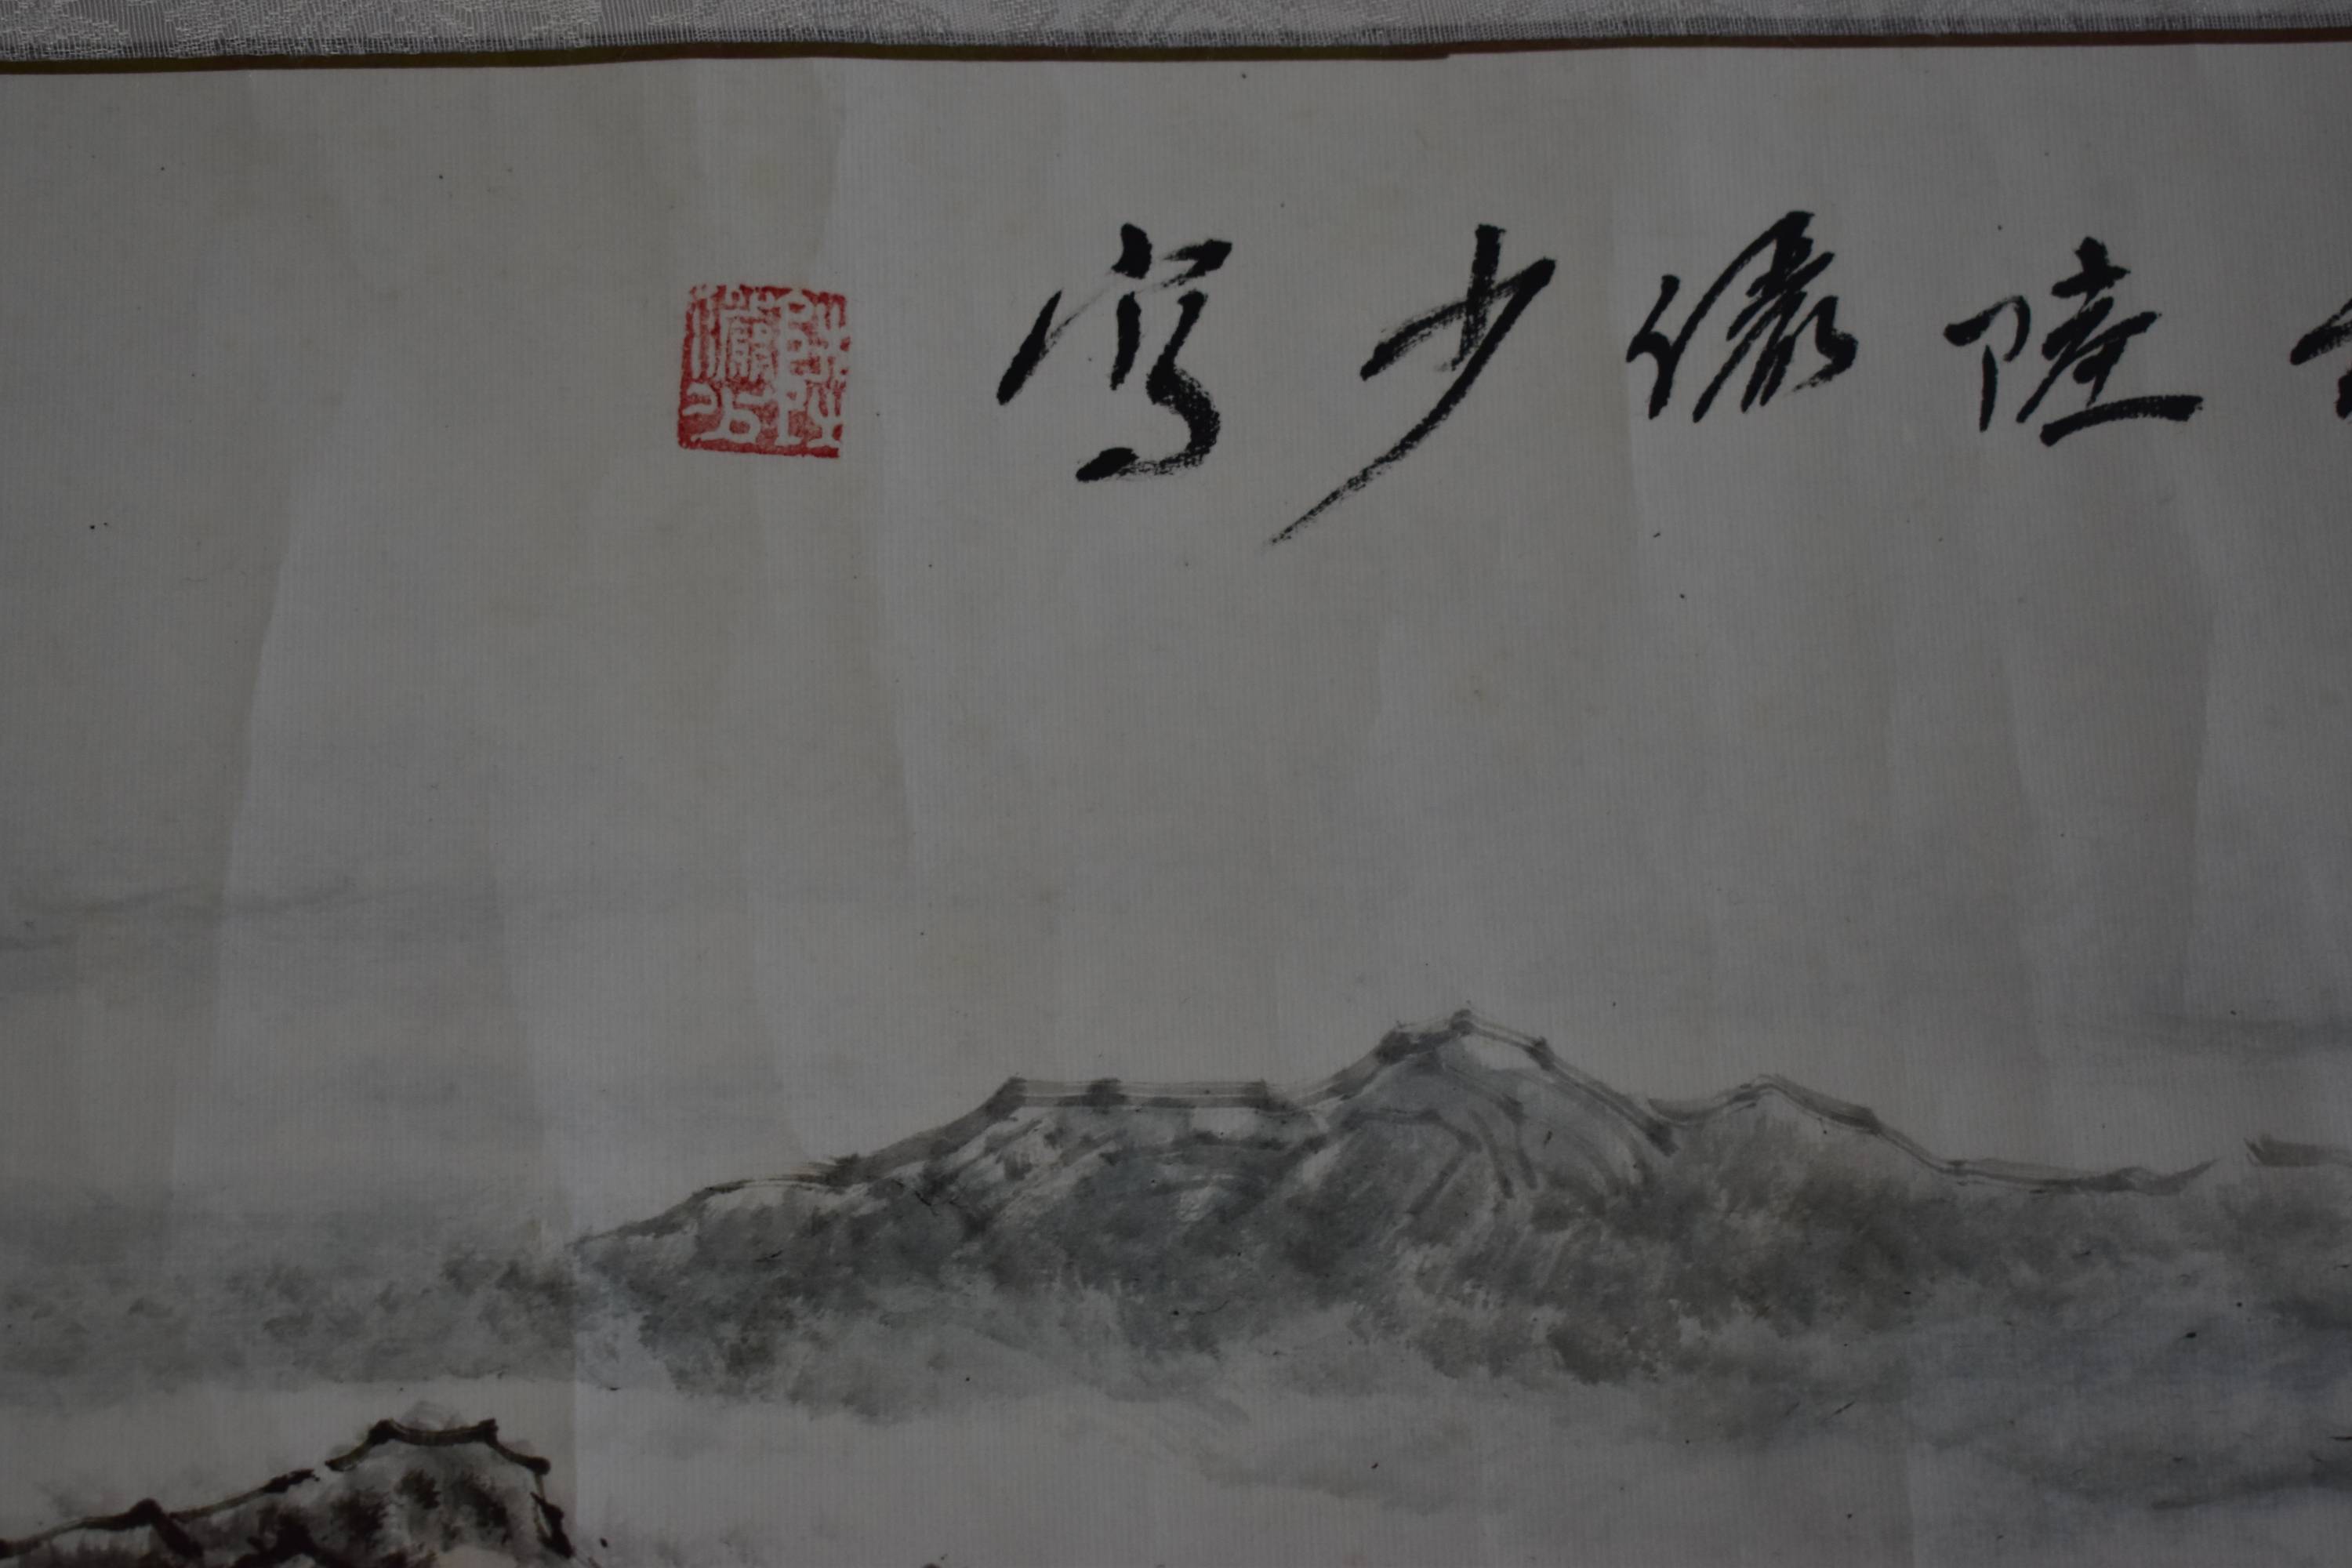 陸儼少寫